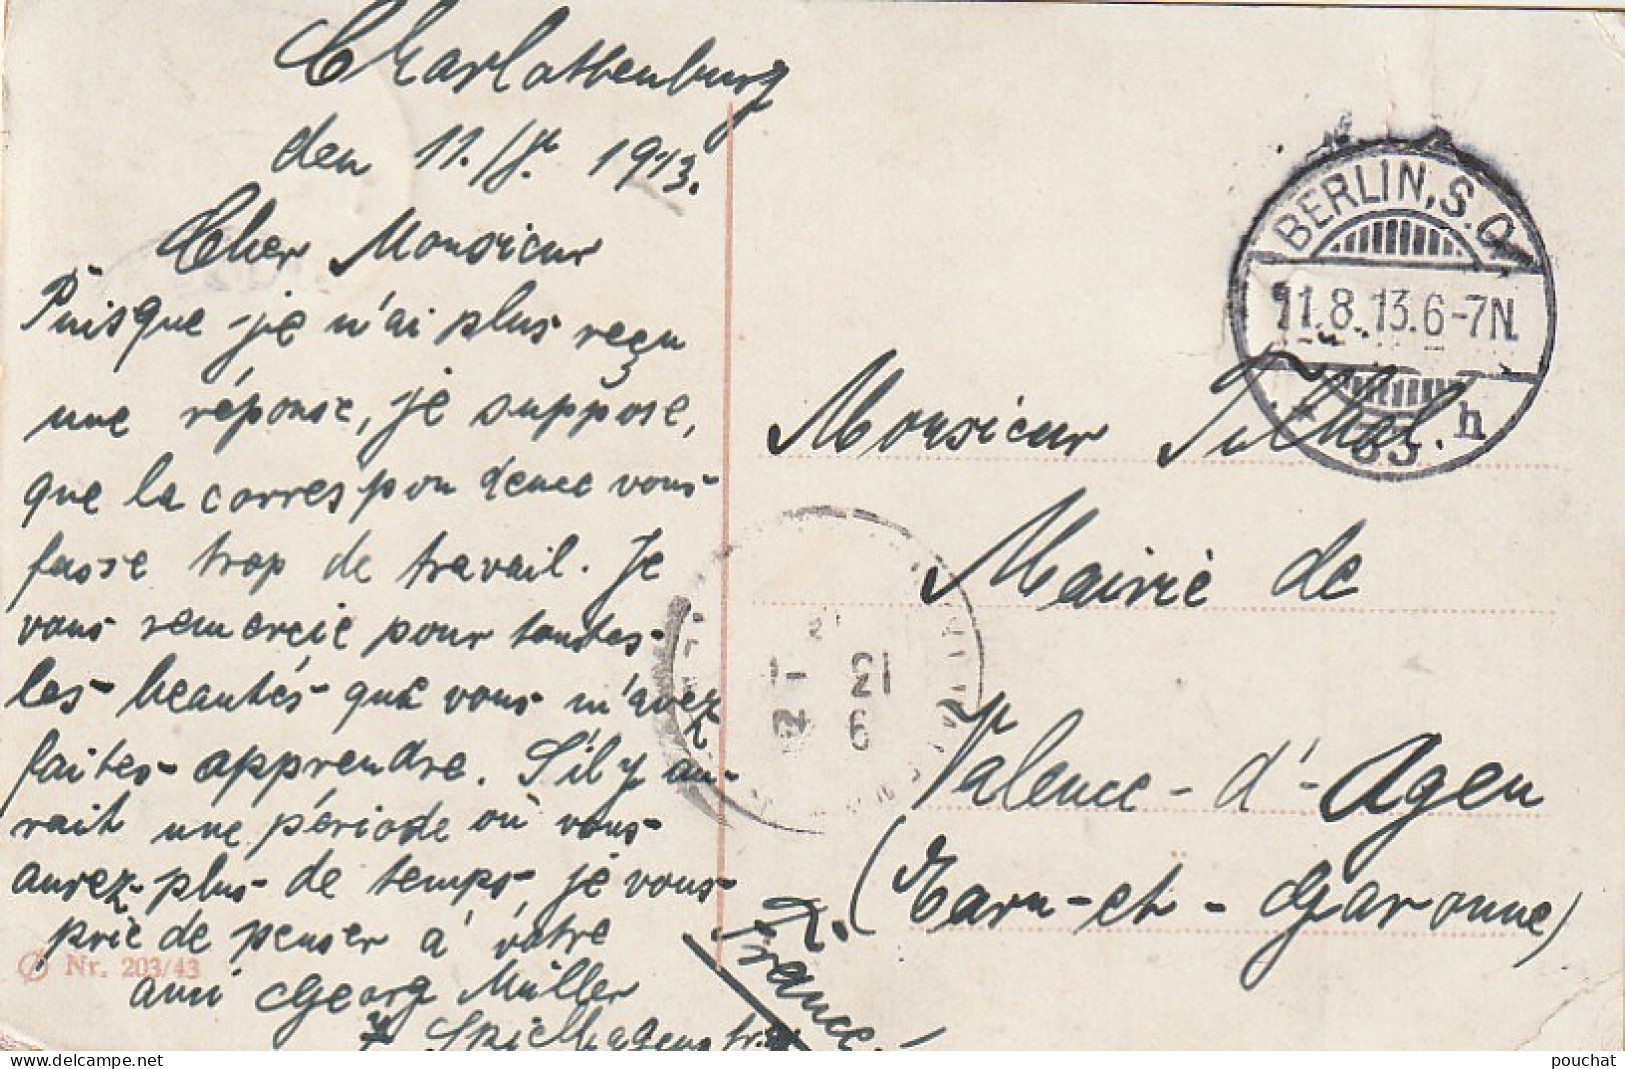 Charlottenburg
den 11. 1913.
Cher Monsieur
Puisque je n'ai plus reçu
une réponse, je suppose,
que la correspondence vous
fasse trop de travail. Je
vous remercie pour toutes
les beautés que vous m'avez
faites apprendre. S'il y au-
rait une période où vous
aurez plus de temps, je vous
prie de penser à votre
ami Georg Müller
Nr. 203/43
BERLIN, S.O.
11.8.13.6-7N.
* 33 h
Monsieur
Mairie de
Valence-d'-Agen
(Tarn-et-Garonne)
France!
pouchat
delcampe.net